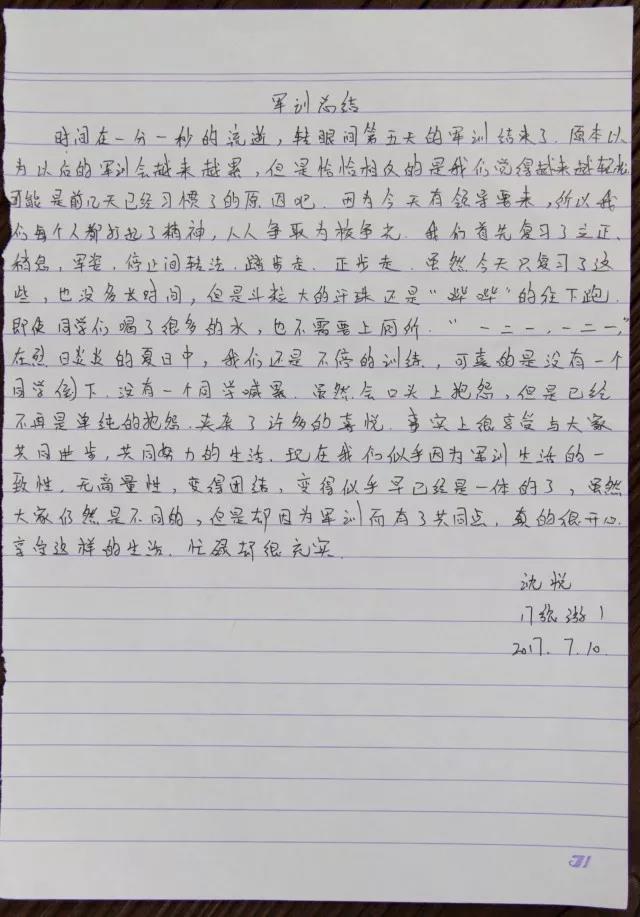 军训总结
时间在一分一秒的流逝，转眼间第五天的军训结束了．原本以
为以后的军训会越来越累，但是恰恰相反的是我们觉得越来越轻松
可能是前几天已经习惯了的原因吧．因为今天有领导要来，所以我
们每个人都打起了精神，人人争取为校争光．我们首先复习了立正、
稍息，军姿，停止间转法．踏步走．正步走．虽然今天只复习了这
些，也没多长时间，但是斗粒大的汗珠还是“哗哗”的往下跑．
即使同学们喝了很多的水，也不需要上厕所．“一二一，一二一，”
在烈日炎炎的夏日中，我们还是不停的训练，可喜的是没有一个
同学倒下．没有一个同学喊累．虽然会口头上抱怨，但是已经
不再是单纯的抱怨．夹杂了许多的喜悦．事实上很享受与大家
共同进步，共同努力的生活．现在我们似乎因为军训生活的一
致性．无商量性，变得团结，变得似乎早已经是一体的了，虽然
大家仍然是不同的，但是却因为军训而有了共同点．真的很开心．
享受这样的生活．忙碌却很充实．
沈悦
17 1
2017.7.10.
31